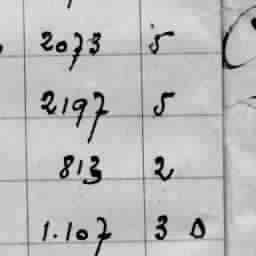 2073 5
2197 5
813 2
1.107 3 0